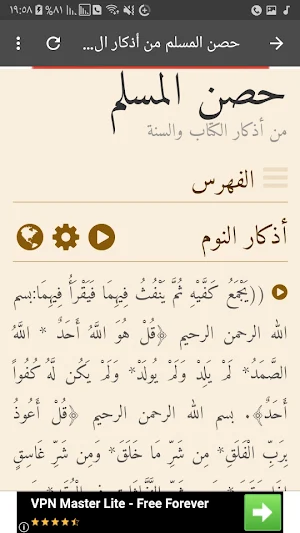 ١٩:٥٨ %٨١
حصن المسلم من أذكار ال...
حصن المسلم
من أذكار الكتاب والسنة
الفهرس
أذكار النوم
((يَجْمَعُ كَفَّيْهِ ثُمَّ يَنْفُثُ فِيهِمَا فَيَقْرَأُ فِيهِمَا:بسم
الله الرحمن الرحيم ﴿قُلْ هُوَ اللَّهُ أَحَدٌ* اللَّهُ
الصَّمَدُ* لَمْ يَلِدْ وَلَمْ يُولَدْ* وَلَمْ يَكُن لَّهُ كُفُواً
أَحَدٌ﴾. بسم الله الرحمن الرحيم ﴿قُلْ أَعُوذُ
بِرَبِّ الْفَلَقِ* مِن شَرِّ مَا خَلَقَ* وَمِن شَرِّ غَاسِقٍ
VPN Master Lite - Free Forever